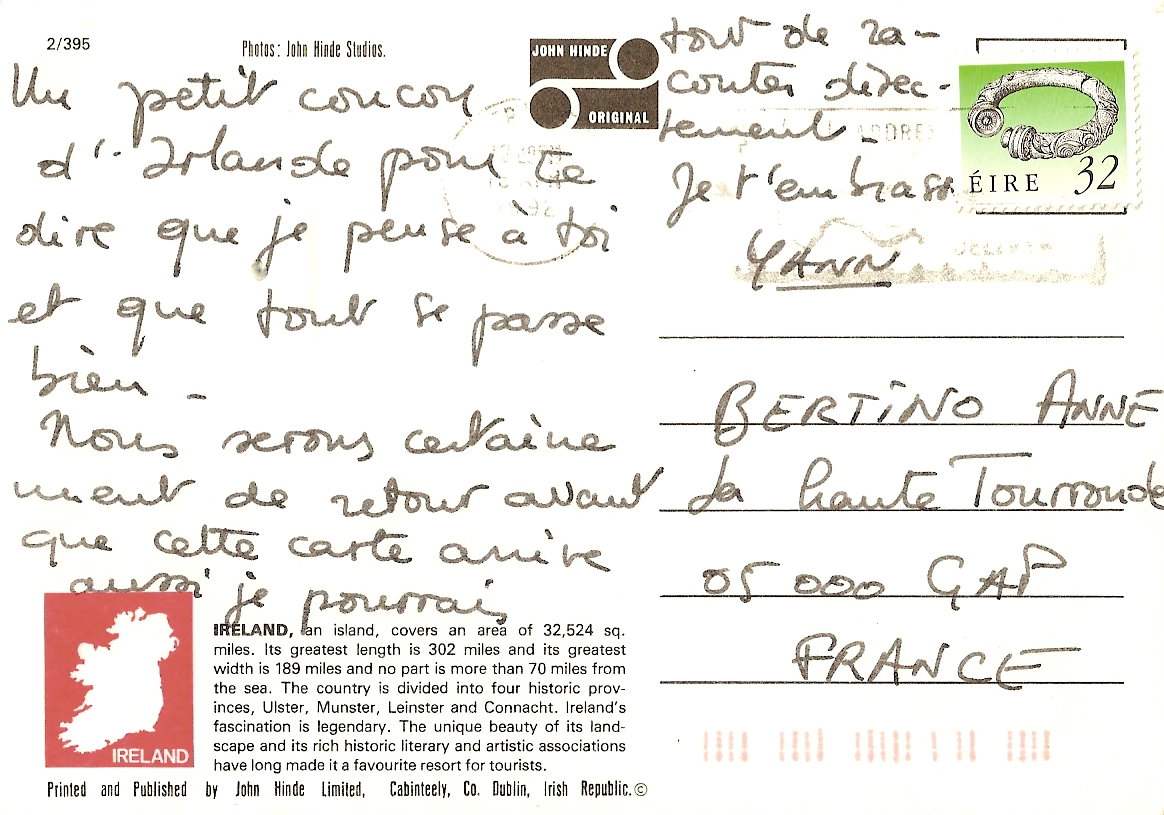 2/395
Photos: John Hinde Studios.
JOHN HINDE
ORIGINAL
Un petit coucou
d'Irlande pour te
dire que je pense à toi
et que tout se passe
bien_
Nous serons certaine
ment de retour avant
que cette carte arrive
aussi je pourrais
tout de ra-
conter direc-
tement_
Je t'embrasse
YANN
ÉIRE 32
BERTINO ANNE
La haute Tourronde
05 000 GAP
FRANCE
IRELAND
IRELAND, an island, covers an area of 32,524 sq.
miles. Its greatest length is 302 miles and its greatest
width is 189 miles and no part is more than 70 miles from
the sea. The country is divided into four historic prov-
inces, Ulster, Munster, Leinster and Connacht. Ireland's
fascination is legendary. The unique beauty of its land-
scape and its rich historic literary and artistic associations
have long made it a favourite resort for tourists.
Printed and Published by John Hinde Limited, Cabinteely, Co. Dublin, Irish Republic.©